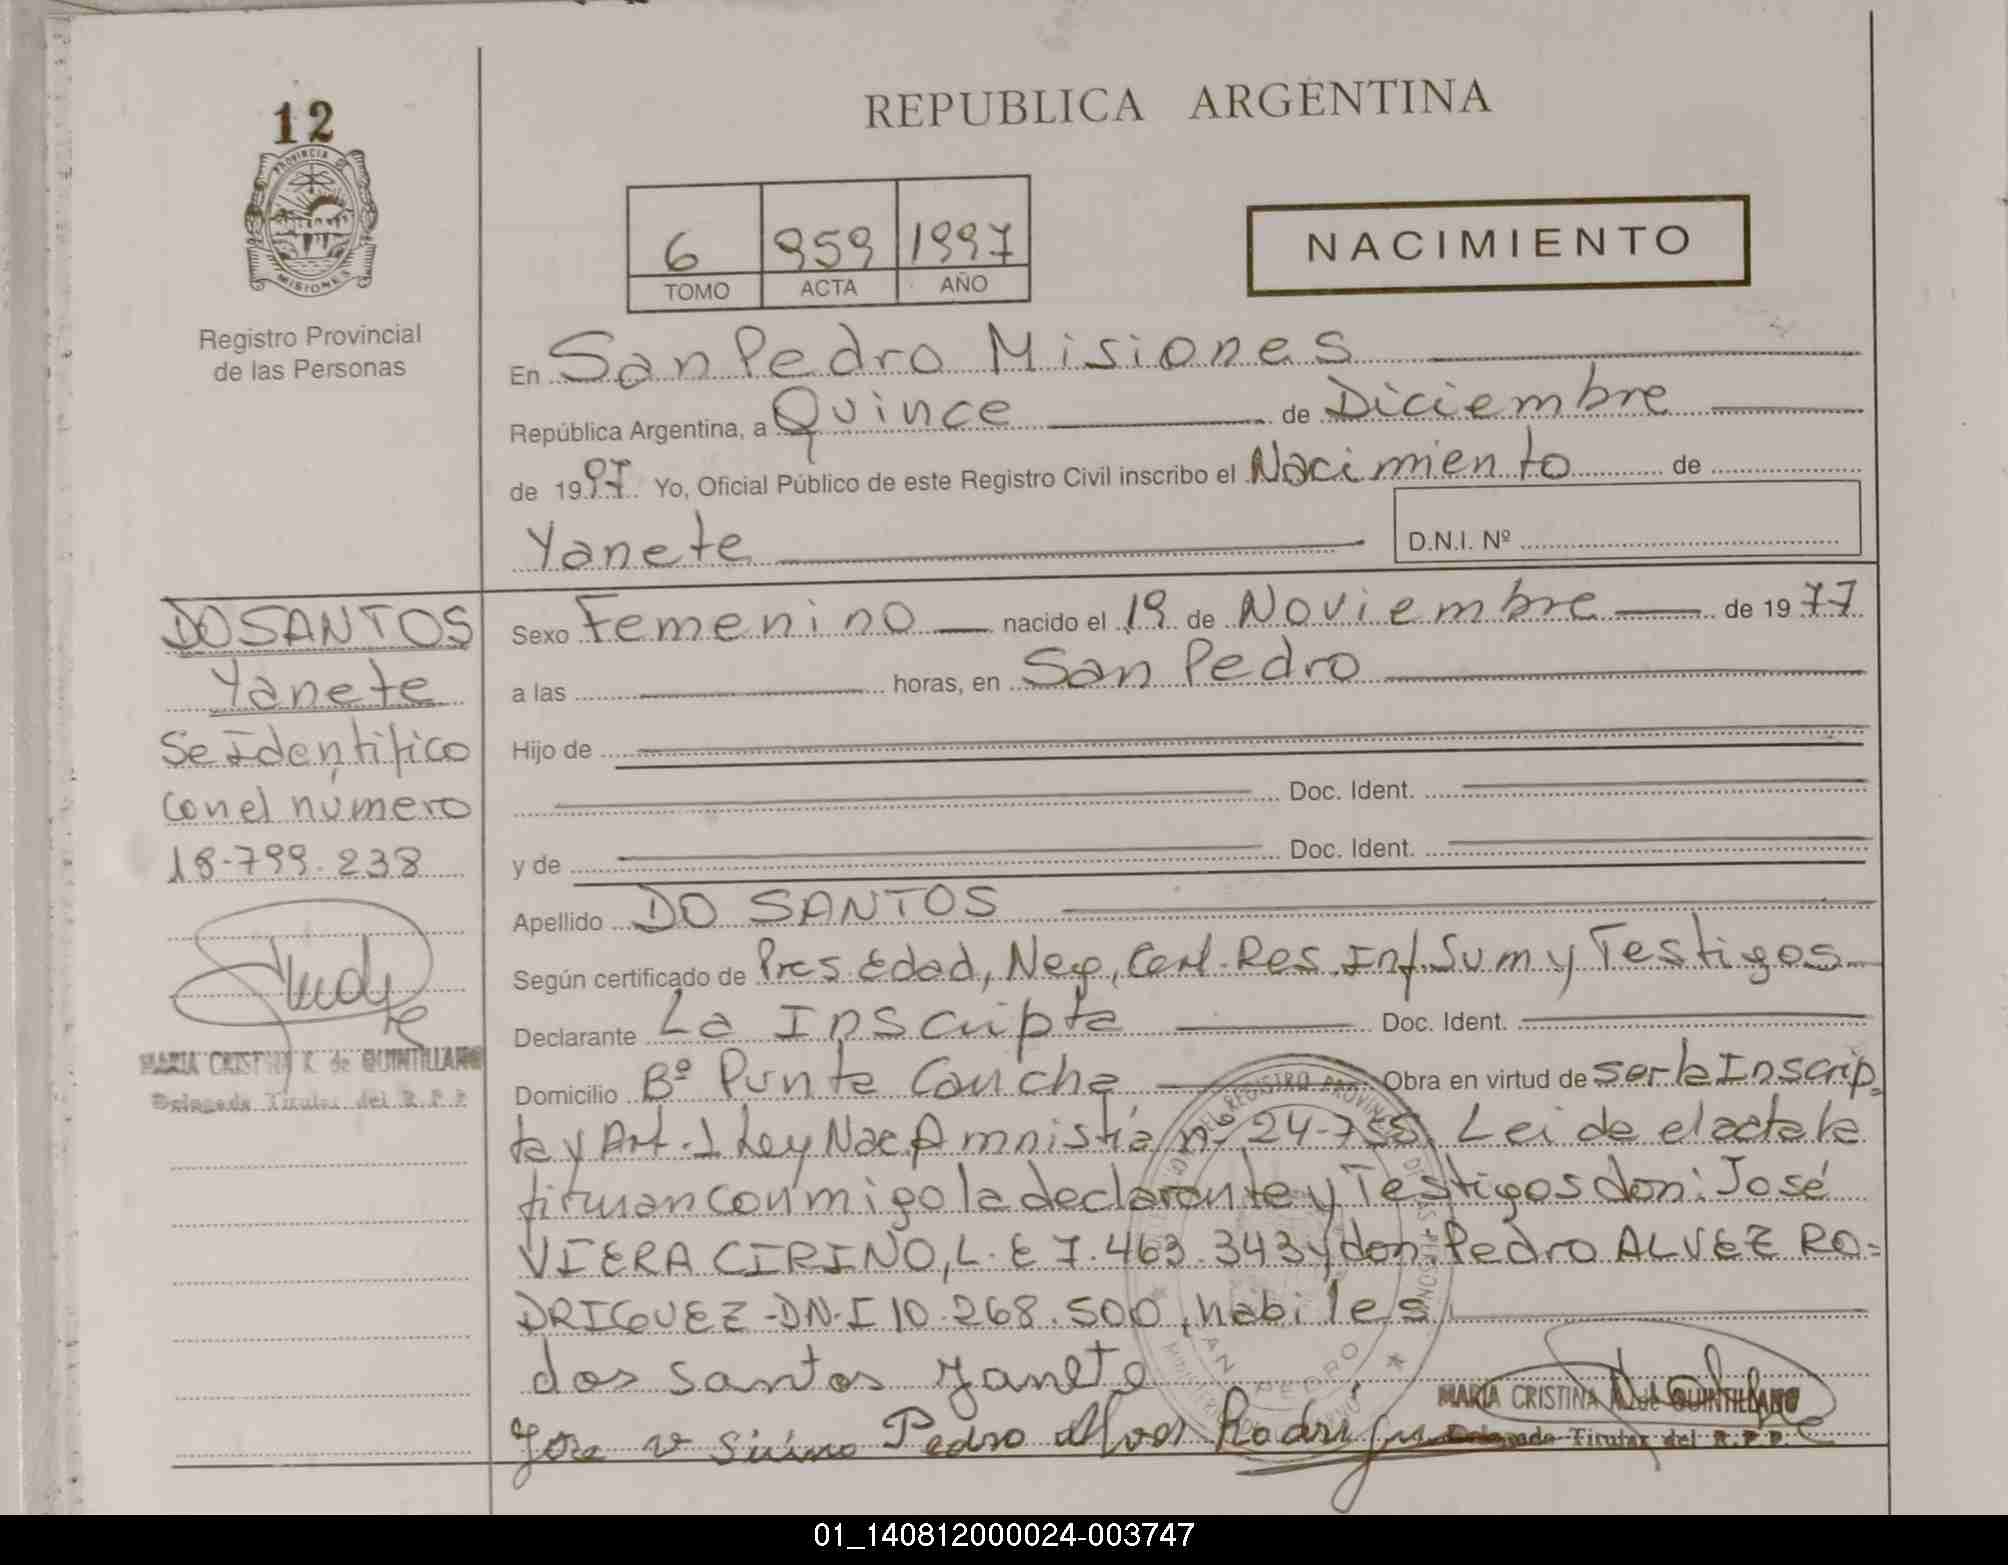 12
PROVINCIA DE
MISIONES
Registro Provincial
de las Personas
REPUBLICA ARGENTINA
6 959 1997
TOMO ACTA AÑO
NACIMIENTO
En San Pedro Misiones
República Argentina, a Quince de Diciembre
de 1997 Yo, Oficial Público de este Registro Civil inscribo el Nacimiento de
Yanete D.N.I. Nº
DO SANTOS
Yanete
Se Identifico
con el número
18-799-238
MARIA CRISTINA K. de QUINTILLANO
Delegada Titular del R.P.P.
Sexo Femenino nacido el 19 de Noviembre de 1977
a las horas, en San Pedro
Hijo de
Doc. Ident.
y de Doc. Ident.
Apellido DO SANTOS
Según certificado de Pres. Edad, Neg, Cert. Res. Inf. Sum y Testigos
Declarante La Inscripta Doc. Ident.
Domicilio Bº Punta Concha Obra en virtud de ser la Inscrip=
ta y Art. 1 Ley Nac Amnistía nº 24-755. Lei de el acta la
firman conmigo la declarante y Testigos don: José
VIERA CIRINO, L. E 7.463.343 y don Pedro ALVEZ RO=
DRIGUEZ-DN-I 10.268.500, habiles
dos santos yanete
Jose v Sirino Pedro Alves Rodrigu
MARIA CRISTINA K. de QUINTILLANO
Delegada Titular del R.P.P.
DEL REGISTRO PROVINCIAL DE LAS PERSONAS
SAN PEDRO
01_140812000024-003747